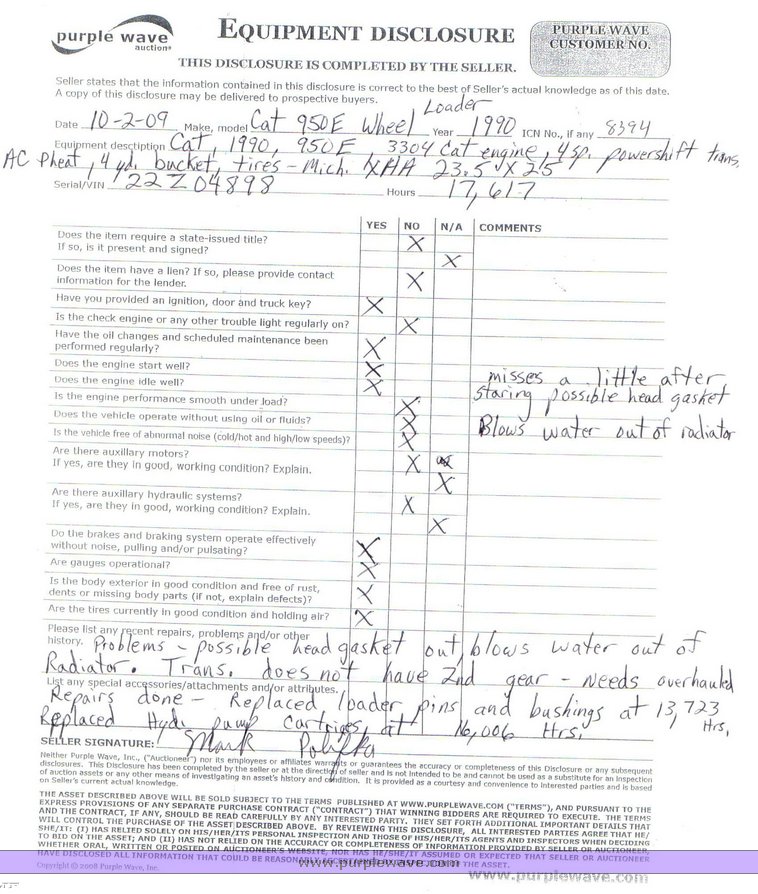 purple wave
auction®
EQUIPMENT DISCLOSURE
PURPLE WAVE
CUSTOMER NO.
THIS DISCLOSURE IS COMPLETED BY THE SELLER.
Seller states that the information contained in this disclosure is correct to the best of Seller's actual knowledge as of this date.
A copy of this disclosure may be delivered to prospective buyers.
Loader
Date 10-2-09 Make, model Cat 950E Wheel Year 1990 ICN No., if any 8394
Equipment description Cat, 1990, 950E 3304 Cat engine, 4 sp. powershift trans,
AC Pheat, 4 yd. bucket, tires - Mich. XHA 23.5 X 25
Serial/VIN 22Z04898 Hours 17,617
YES NO N/A COMMENTS
Does the item require a state-issued title? X
If so, is it present and signed? X
Does the item have a lien? If so, please provide contact
information for the lender. X
Have you provided an ignition, door and truck key? X
Is the check engine or any other trouble light regularly on? X
Have the oil changes and scheduled maintenance been
performed regularly? X
Does the engine start well? X
Does the engine idle well? X misses a little after
Is the engine performance smooth under load? X staring possible head gasket
Does the vehicle operate without using oil or fluids? X
Is the vehicle free of abnormal noise (cold/hot and high/low speeds)? X Blows water out of radiator
Are there auxiliary motors? X
If yes, are they in good, working condition? Explain. X
Are there auxiliary hydraulic systems? X
If yes, are they in good, working condition? Explain. X
Do the brakes and braking system operate effectively
without noise, pulling and/or pulsating? X
Are gauges operational? X
Is the body exterior in good condition and free of rust,
dents or missing body parts (if not, explain defects)? X
Are the tires currently in good condition and holding air? X
Please list any recent repairs, problems and/or other
history. Problems - possible head gasket out, blows water out of
Radiator. Trans. does not have 2nd gear - needs overhauled
List any special accessories/attachments and/or attributes.
Repairs done - Replaced loader pins and bushings at 13,723
Hrs,
Replaced Hyd. pump cartriges, at 16,006 Hrs,
SELLER SIGNATURE: Mark
Neither Purple Wave, Inc., ("Auctioneer") nor its employees or affiliates warrants or guarantees the accuracy or completeness of this Disclosure or any subsequent
disclosures. This Disclosure has been completed by the seller or at the direction of seller and is not intended to and cannot be used as a substitute for an inspection
of auction assets or any other means of investigating an asset's history and condition. It is provided as a courtesy and convenience to interested parties and is based
on Seller's current actual knowledge.
THE ASSET DESCRIBED ABOVE WILL BE SOLD SUBJECT TO THE TERMS PUBLISHED AT WWW.PURPLEWAVE.COM ("TERMS"), AND PURSUANT TO THE
EXPRESS PROVISIONS OF ANY SEPARATE PURCHASE CONTRACT ("CONTRACT") THAT WINNING BIDDERS ARE REQUIRED TO EXECUTE. THE TERMS
AND THE CONTRACT, IF ANY, SHOULD BE READ CAREFULLY BY ANY INTERESTED PARTY. THEY SET FORTH ADDITIONAL IMPORTANT DETAILS THAT
WILL CONTROL THE PURCHASE OF THE ASSET DESCRIBED ABOVE. BY REVIEWING THIS DISCLOSURE, ALL INTERESTED PARTIES AGREE THAT HE/
SHE/IT: (1) HAS RELIED SOLELY ON HIS/HER/ITS PERSONAL INSPECTION AND THOSE OF HIS/HER/ITS AGENTS AND INSPECTORS WHEN DECIDING
TO BID ON THE ASSET; AND (II) HAS NOT RELIED ON THE ACCURACY OR COMPLETENESS OF INFORMATION PROVIDED BY SELLER OR AUCTIONEER,
WHETHER ORAL, WRITTEN OR POSTED ON AUCTIONEER'S WEBSITE, NOR HAS HE/SHE/IT ASSUMED OR EXPECTED THAT SELLER OR AUCTIONEER
HAVE DISCLOSED ALL INFORMATION THAT COULD BE THE ASSET.
Copyright © 2008 Purple Wave, Inc.
www.purplewave.com
www.purplewave.com